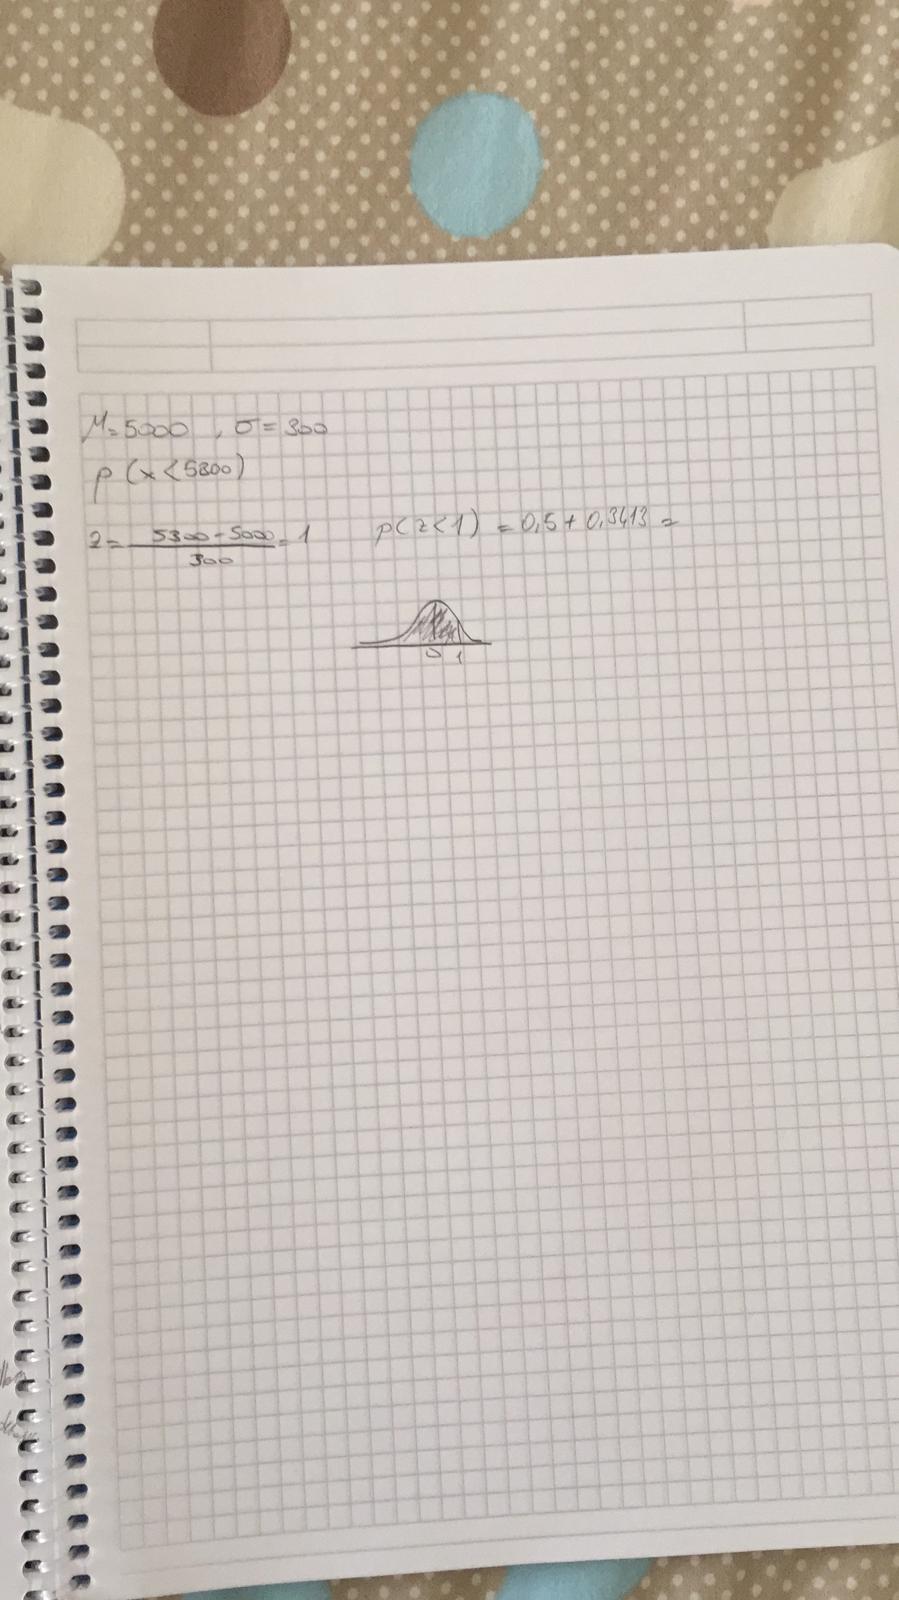 μ=5000 , σ=300
p(x<5300)
z= 5300-5000 / 300 = 1 p(z<1) = 0,5+0,3413 =
0 1